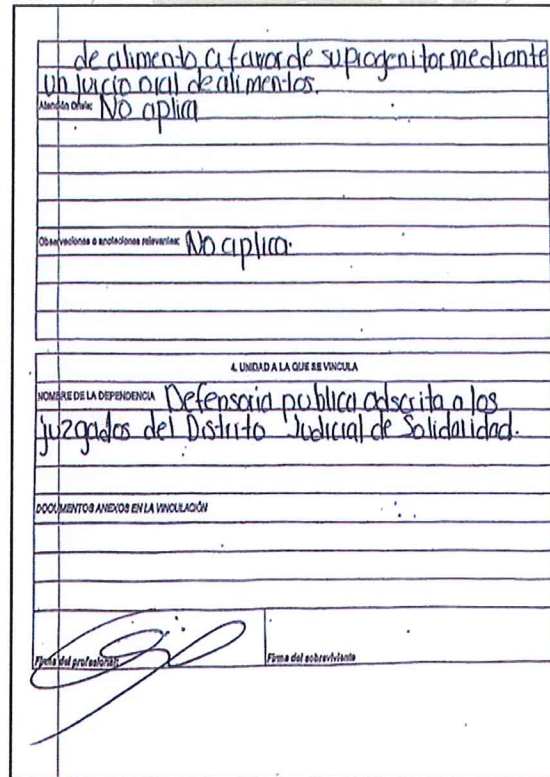 de alimento, a favor de su progenitor mediante
un juicio oral de alimentos.
Atención Crisis: No aplica
Observaciones o anotaciones relevantes: No aplica.
4. UNIDAD A LA QUE SE VINCULA
NOMBRE DE LA DEPENDENCIA Defensoria publica adscrita a los
juzgados del Distrito Judicial de Solidaridad.
DOCUMENTOS ANEXOS EN LA VINCULACIÓN
Firma del profesional: Firma del sobreviviente